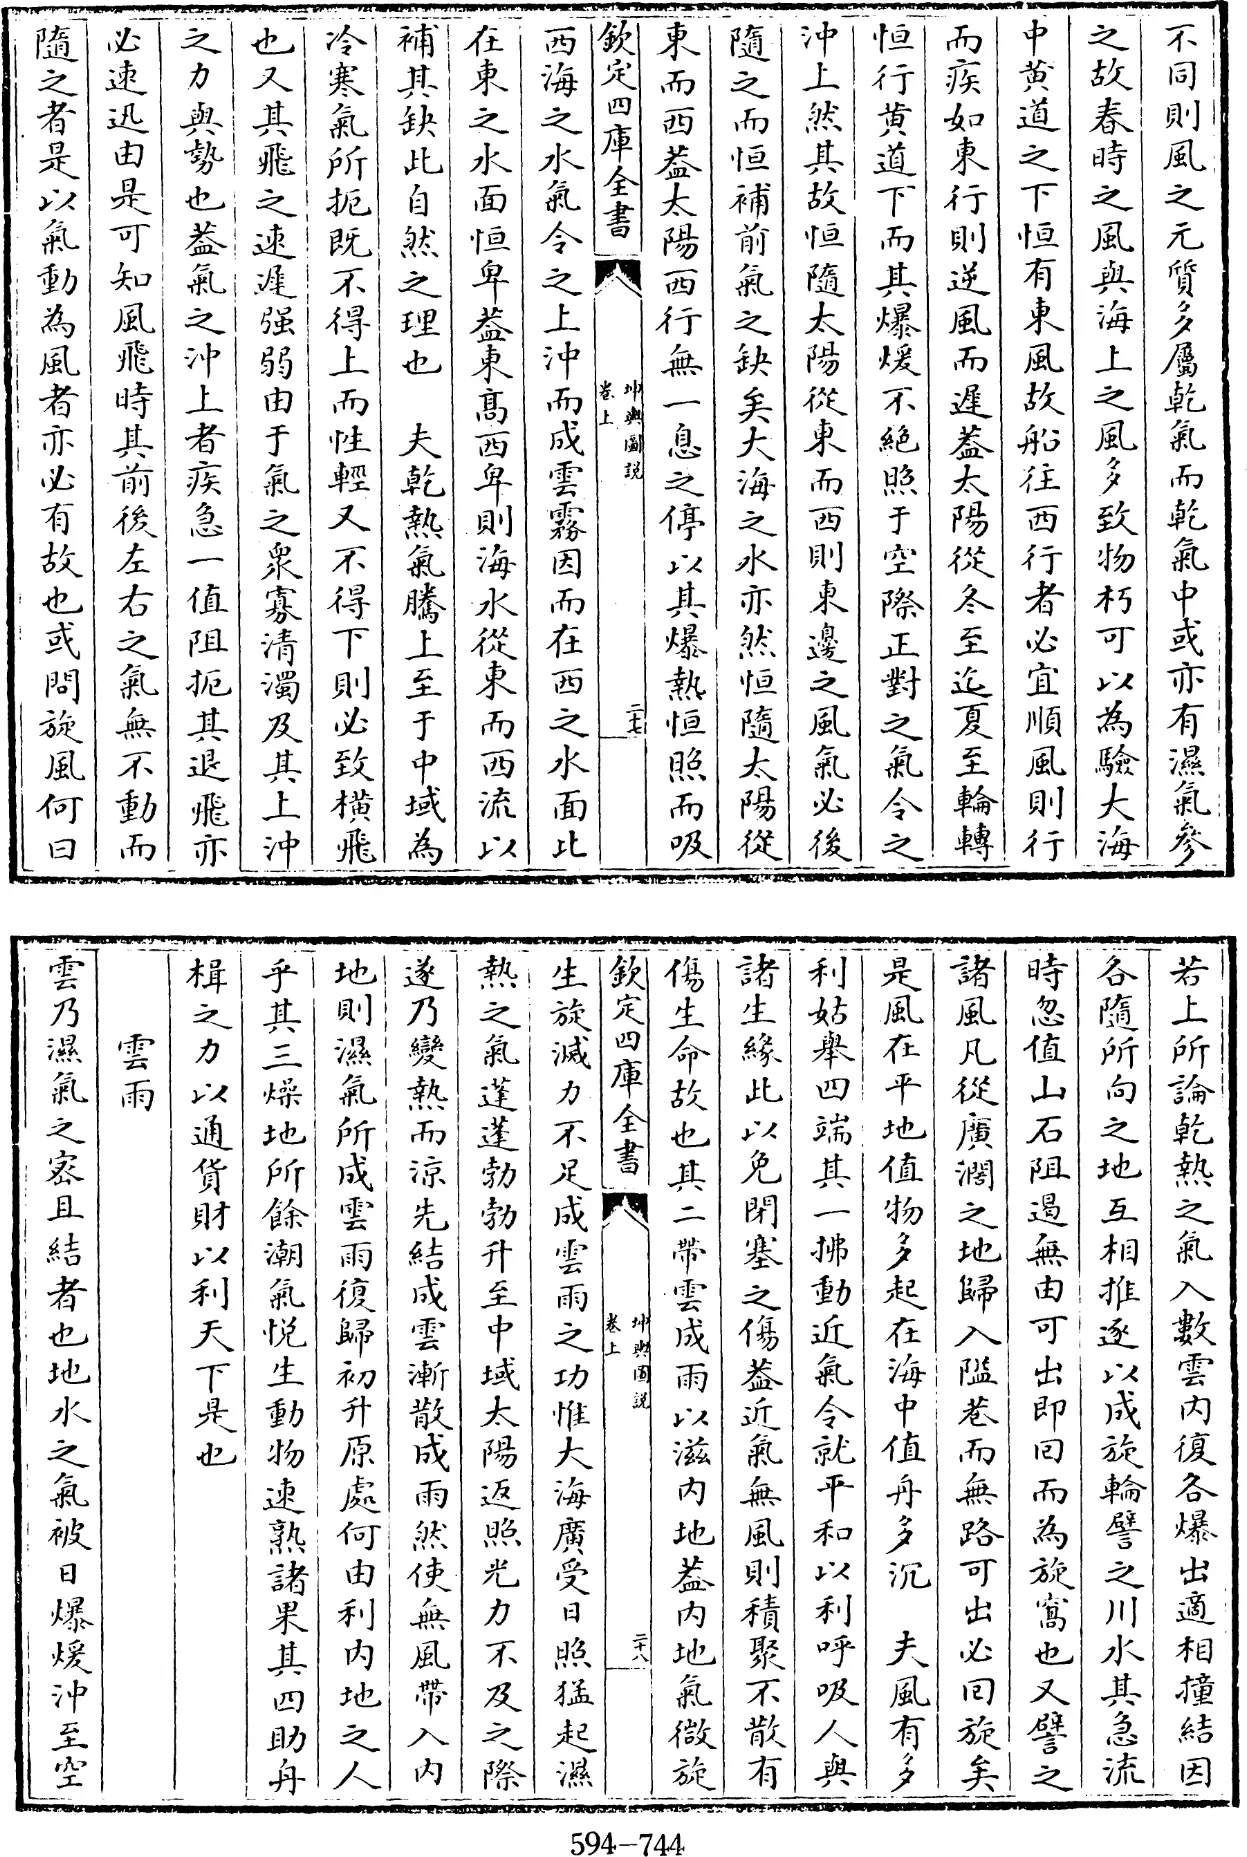 不同則風之元質多屬乾氣而乾氣中或亦有濕氣參
之故春時之風與海上之風多致物朽可以為驗大海
中黄道之下恒有東風故船往西行者必宜順風則行
而疾如東行則逆風而遲葢太陽從冬至迄夏至輪轉
恒行黄道下而其爆煖不絕照于空際正對之氣令之
沖上然其故恒隨太陽從東而西則東邊之風氣必後
隨之而恒補前氣之缺矣大海之水亦然恒隨太陽從
東而西葢太陽西行無一息之停以其爆熱恒照而吸
欽定四庫全書
坤輿圖說
卷上
二十七
西海之水氣令之上沖而成雲霧因而在西之水面比
在東之水面恒卑葢東髙西卑則海水從東而西流以
補其缺此自然之理也 夫乾熱氣騰上至于中域為
冷寒氣所扼既不得上而性輕又不得下則必致橫飛
也又其飛之速遲强弱由于氣之衆寡清濁及其上沖
之力與勢也葢氣之沖上者疾急一值阻扼其退飛亦
必速迅由是可知風飛時其前後左右之氣無不動而
隨之者是以氣動為風者亦必有故也或問旋風何曰
若上所論乾熱之氣入數雲内復各爆出適相撞結因
各隨所向之地互相推逐以成旋輪譬之川水其急流
時忽值山石阻遏無由可出即回而為旋窩也又譬之
諸風凡從廣濶之地歸入隘巷而無路可出必回旋矣
是風在平地值物多起在海中值舟多沉 夫風有多
利姑舉四端其一拂動近氣令就平和以利呼吸人與
諸生緣此以免閉塞之傷葢近氣無風則積聚不散有
傷生命故也其二帶雲成雨以滋内地葢内地氣微旋
欽定四庫全書
坤輿圖說
卷上
二十八
生旋滅力不足成雲雨之功惟大海廣受日照猛起濕
熱之氣蓬蓬勃勃升至中域太陽返照光力不及之際
遂乃變熱而涼先結成雲漸散成雨然使無風帶入内
地則濕氣所成雲雨復歸初升原處何由利内地之人
乎其三燥地所餘潮氣悅生動物速熟諸果其四助舟
楫之力以通貨財以利天下是也
雲雨
雲乃濕氣之密且結者也地水之氣被日爆煖沖至空
594-744